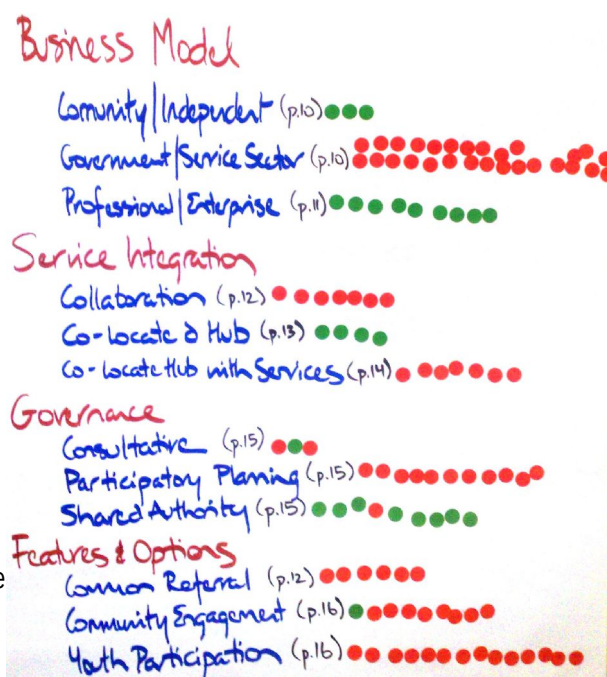 Business Model
Comunity/Independent (p.10)
Government/Service Sector (p.10)
Professional/Enterprise (p.11)
Service Integration
Collaboration (p.12)
Co-locate d Hub (p.13)
Co-locate Hub with Services (p.14)
Governance
Consultative (p.15)
Participatory Planning (p.15)
Shared Authority (p.15)
Features & Options
e
Common Referral (p.12)
Community Engagement (p.16)
Youth Participation (p.16)